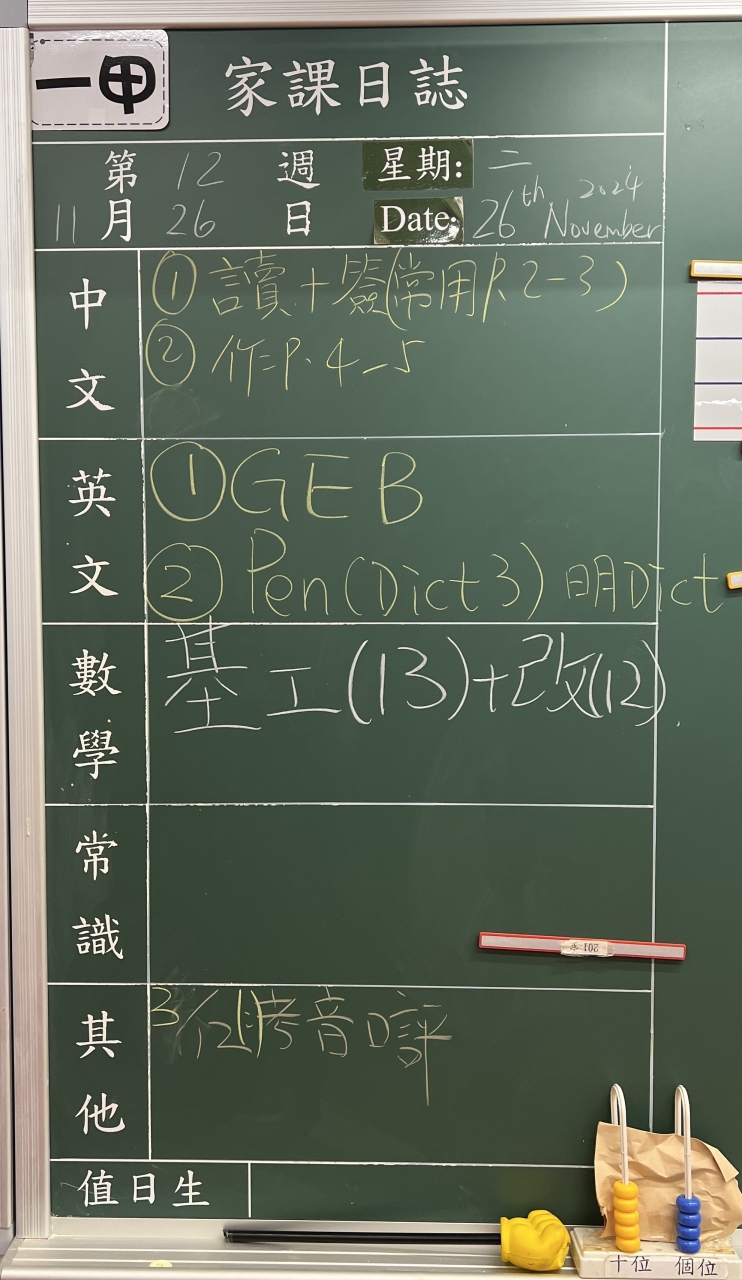 一甲
家課日誌
第 12 週 星期: 二
11 月 26 日 Date: 26th November 2024
中文
① 讀+簽(常用P.2-3)
② 作:P.4-5
英文
① GEB
② Pen(Dict 3) 明Dict
數學
基工(13)+改(12).
常識
201
其他
3/12 考音口評
值日生
十位 個位